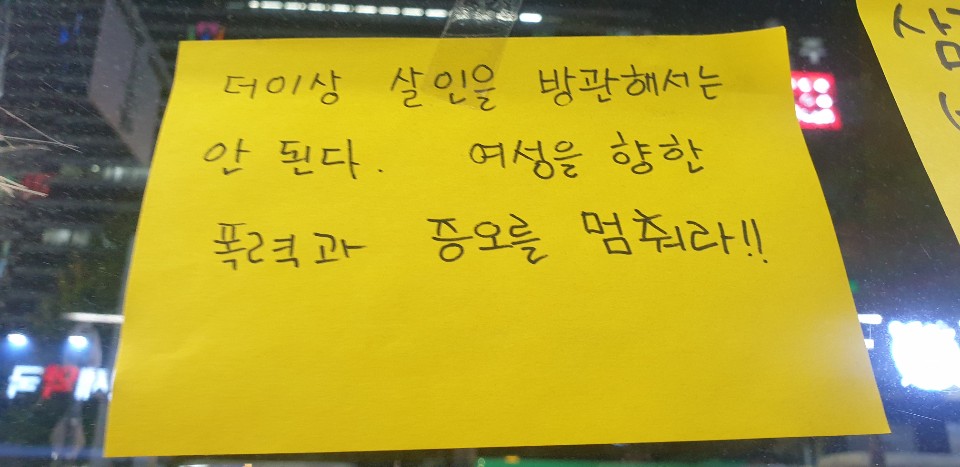 더이상 살인을 방관해서는
안 된다. 여성을 향한
폭력과 증오를 멈춰라!!